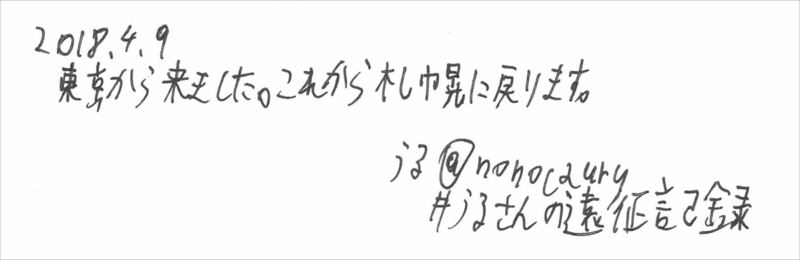 2018.4.9
東京から来ました。これから札幌に戻ります。
うる@nonocaury
#うるさんの遠征記録